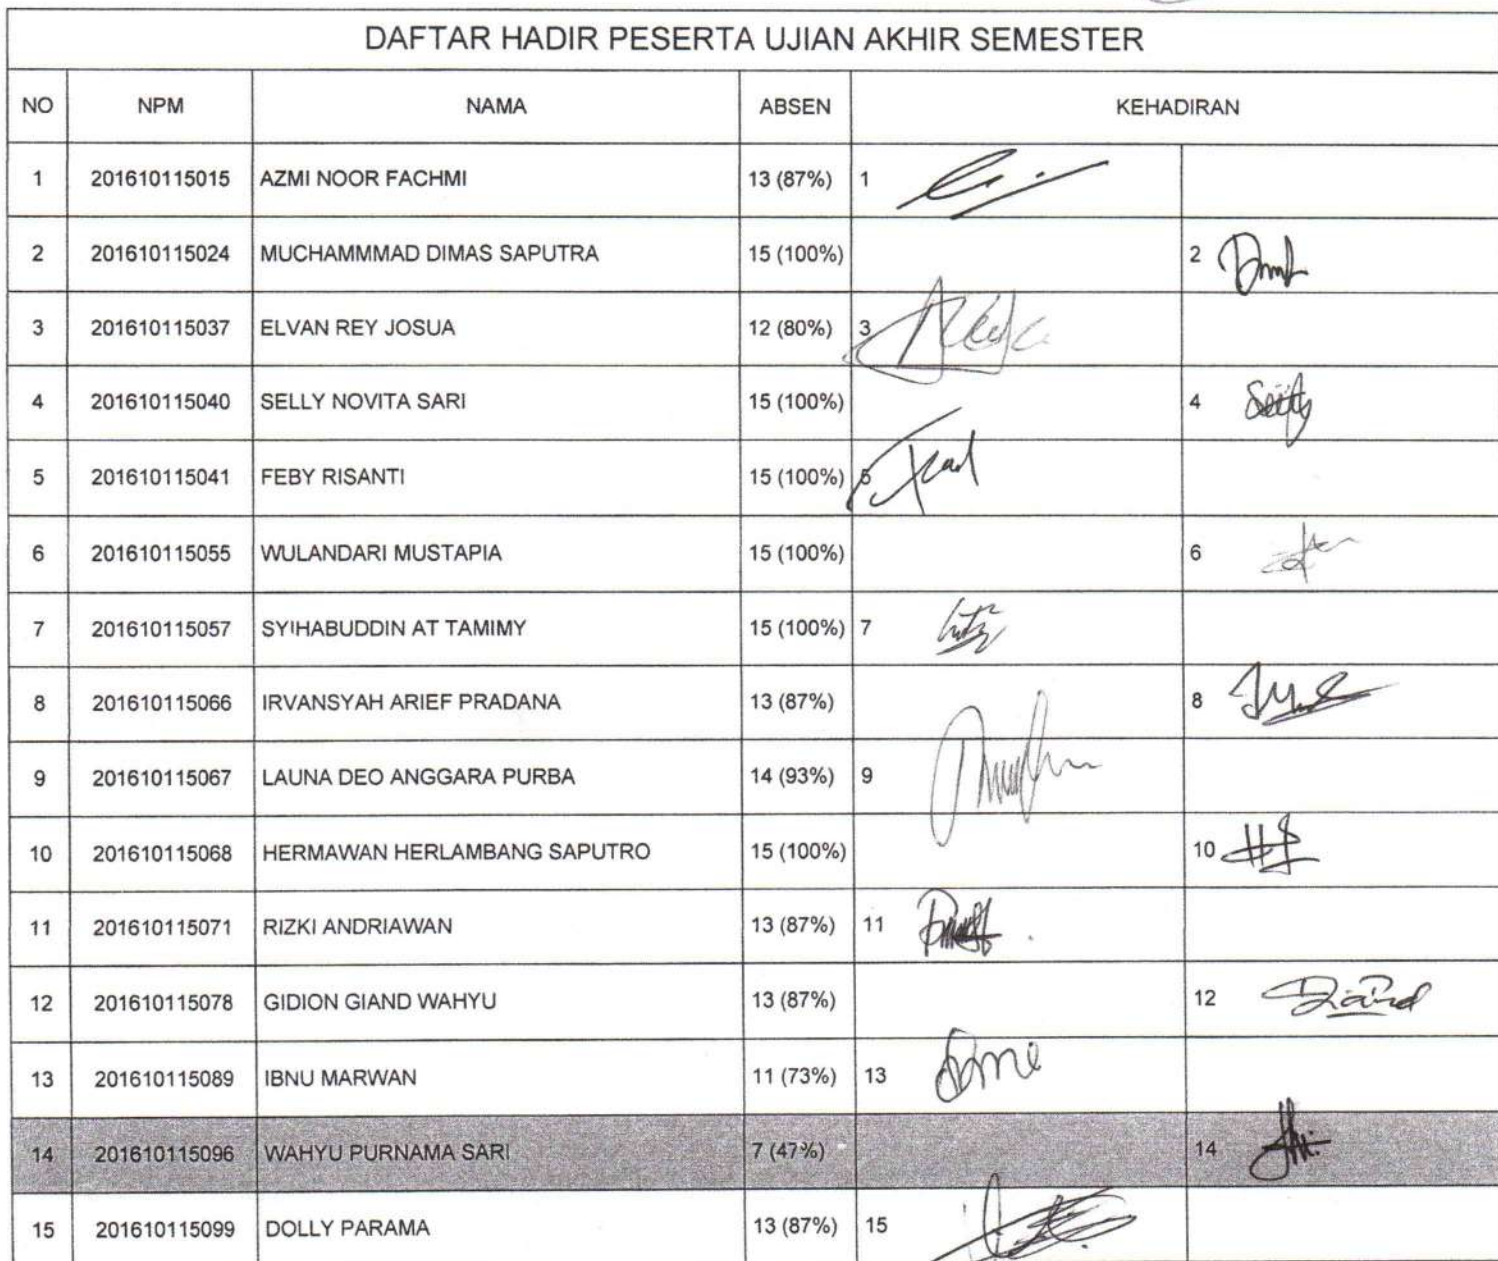 DAFTAR HADIR PESERTA UJIAN AKHIR SEMESTER
NO NPM NAMA ABSEN KEHADIRAN
1 201610115015 AZMI NOOR FACHMI 13 (87%) 1
2 201610115024 MUCHAMMMAD DIMAS SAPUTRA 15 (100%) 2
3 201610115037 ELVAN REY JOSUA 12 (80%) 3
4 201610115040 SELLY NOVITA SARI 15 (100%) 4 Selly
5 201610115041 FEBY RISANTI 15 (100%) 5
6 201610115055 WULANDARI MUSTAPIA 15 (100%) 6
7 201610115057 SYIHABUDDIN AT TAMIMY 15 (100%) 7
8 201610115066 IRVANSYAH ARIEF PRADANA 13 (87%) 8
9 201610115067 LAUNA DEO ANGGARA PURBA 14 (93%) 9
10 201610115068 HERMAWAN HERLAMBANG SAPUTRO 15 (100%) 10
11 201610115071 RIZKI ANDRIAWAN 13 (87%) 11
12 201610115078 GIDION GIAND WAHYU 13 (87%) 12
13 201610115089 IBNU MARWAN 11 (73%) 13
14 201610115096 WAHYU PURNAMA SARI 7 (47%) 14
15 201610115099 DOLLY PARAMA 13 (87%) 15